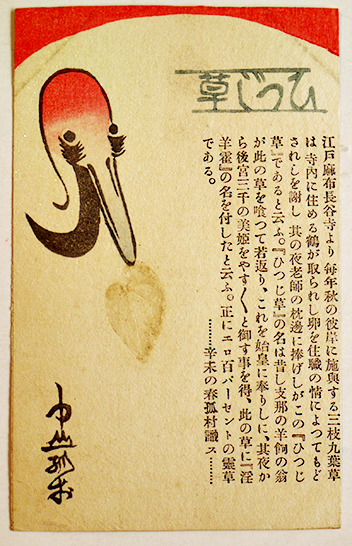 ひつじ草
江戸麻布長谷寺より毎年秋の彼岸に施與する三枝九葉草
は寺內に住める鶴が取られし卵を住職の情によつてもど
されしを謝し其の夜老師の枕邊に捧げしがこの『ひつじ
草』であると云ふ。『ひつじ草』の名は昔し支那の羊飼の翁
が此の草を喰つて若返り、これを始皇に奉りしに、其夜か
ら後宮三千の美姫をやす〱と御す事を得、此の草に『淫
羊霍』の名を付したと云ふ。正にエロ百パーセントの靈草
である。 ………辛未の春孤村識ス………